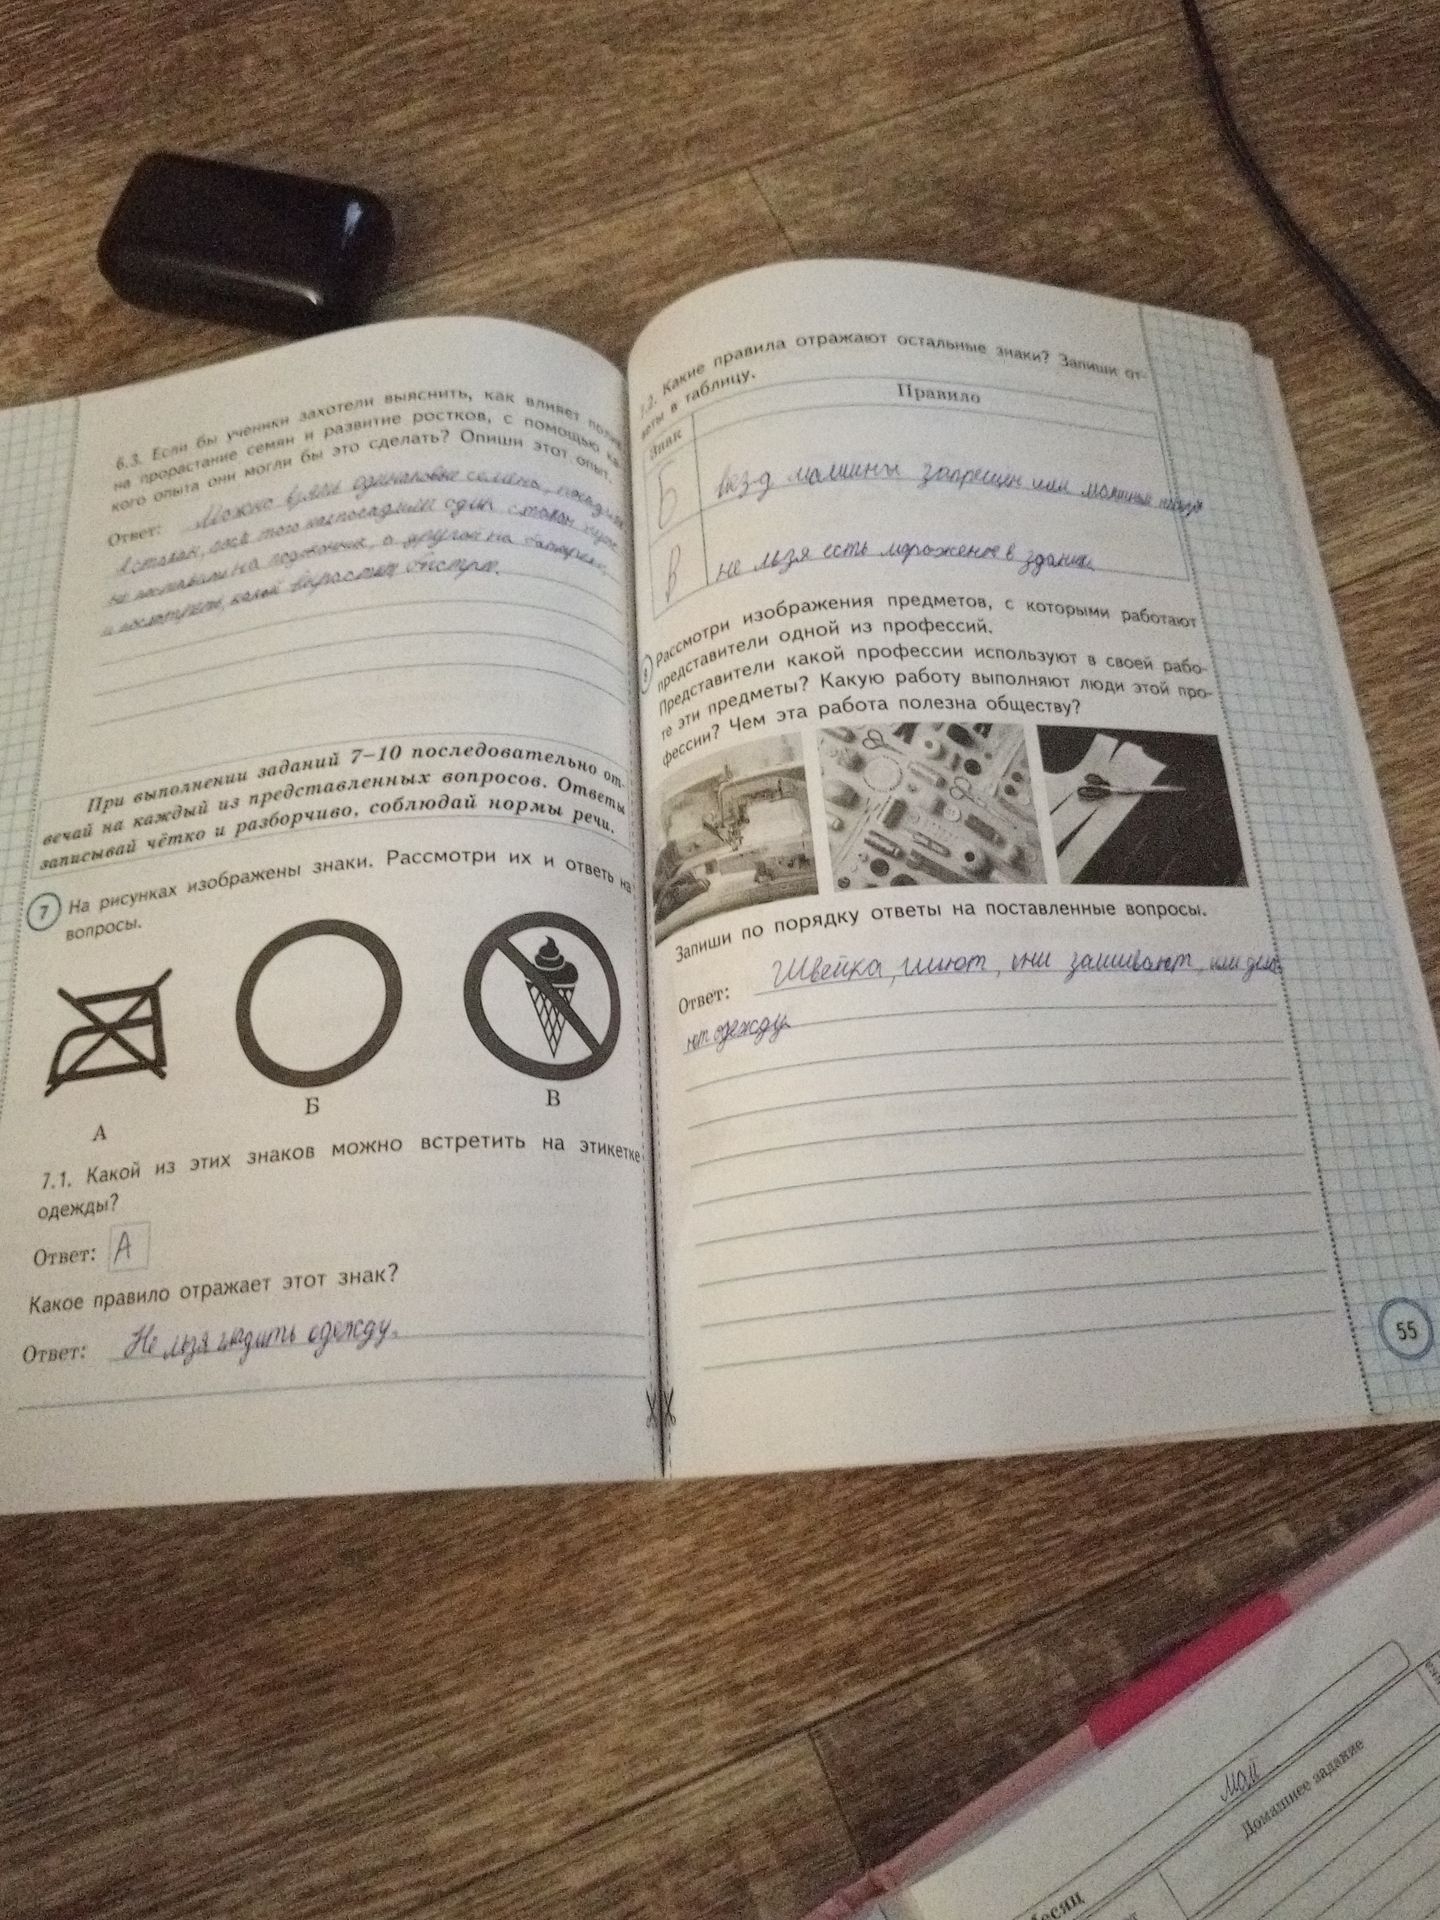 6.3. Если бы ученики захотели выяснить, как влияет полив
на прорастание семян и развитие ростков, с помощью ка-
кого опыта они могли бы это сделать? Опиши этот опыт.
Ответ: Можно взять одинаковые семена, посадить
в стакан, после того как посадили один стакан
поставили на подоконник, а другой на батарею,
и посмотреть, какой вырастит быстрее.
При выполнении заданий 7–10 последовательно от-
вечай на каждый из представленных вопросов. Ответы
записывай чётко и разборчиво, соблюдай нормы речи.
7 На рисунках изображены знаки. Рассмотри их и ответь на
вопросы.
А
Б
В
7.1. Какой из этих знаков можно встретить на этикетке
одежды?
Ответ: А
Какое правило отражает этот знак?
Ответ: Не льзя гладить одежду.
7.2. Какие правила отражают остальные знаки? Запиши от-
веты в таблицу.
Знак Правило
Б машины запрещен или
В не льзя есть мороженое в здании
8 Рассмотри изображения предметов, с которыми работают
представители одной из профессий.
Представители какой профессии используют в своей рабо-
те эти предметы? Какую работу выполняют люди этой про-
фессии? Чем эта работа полезна обществу?
Запиши по порядку ответы на поставленные вопросы.
Ответ: Швейка, шиют, они зашивают, или дела-
ют одежду.
55
май
Домашнее задание